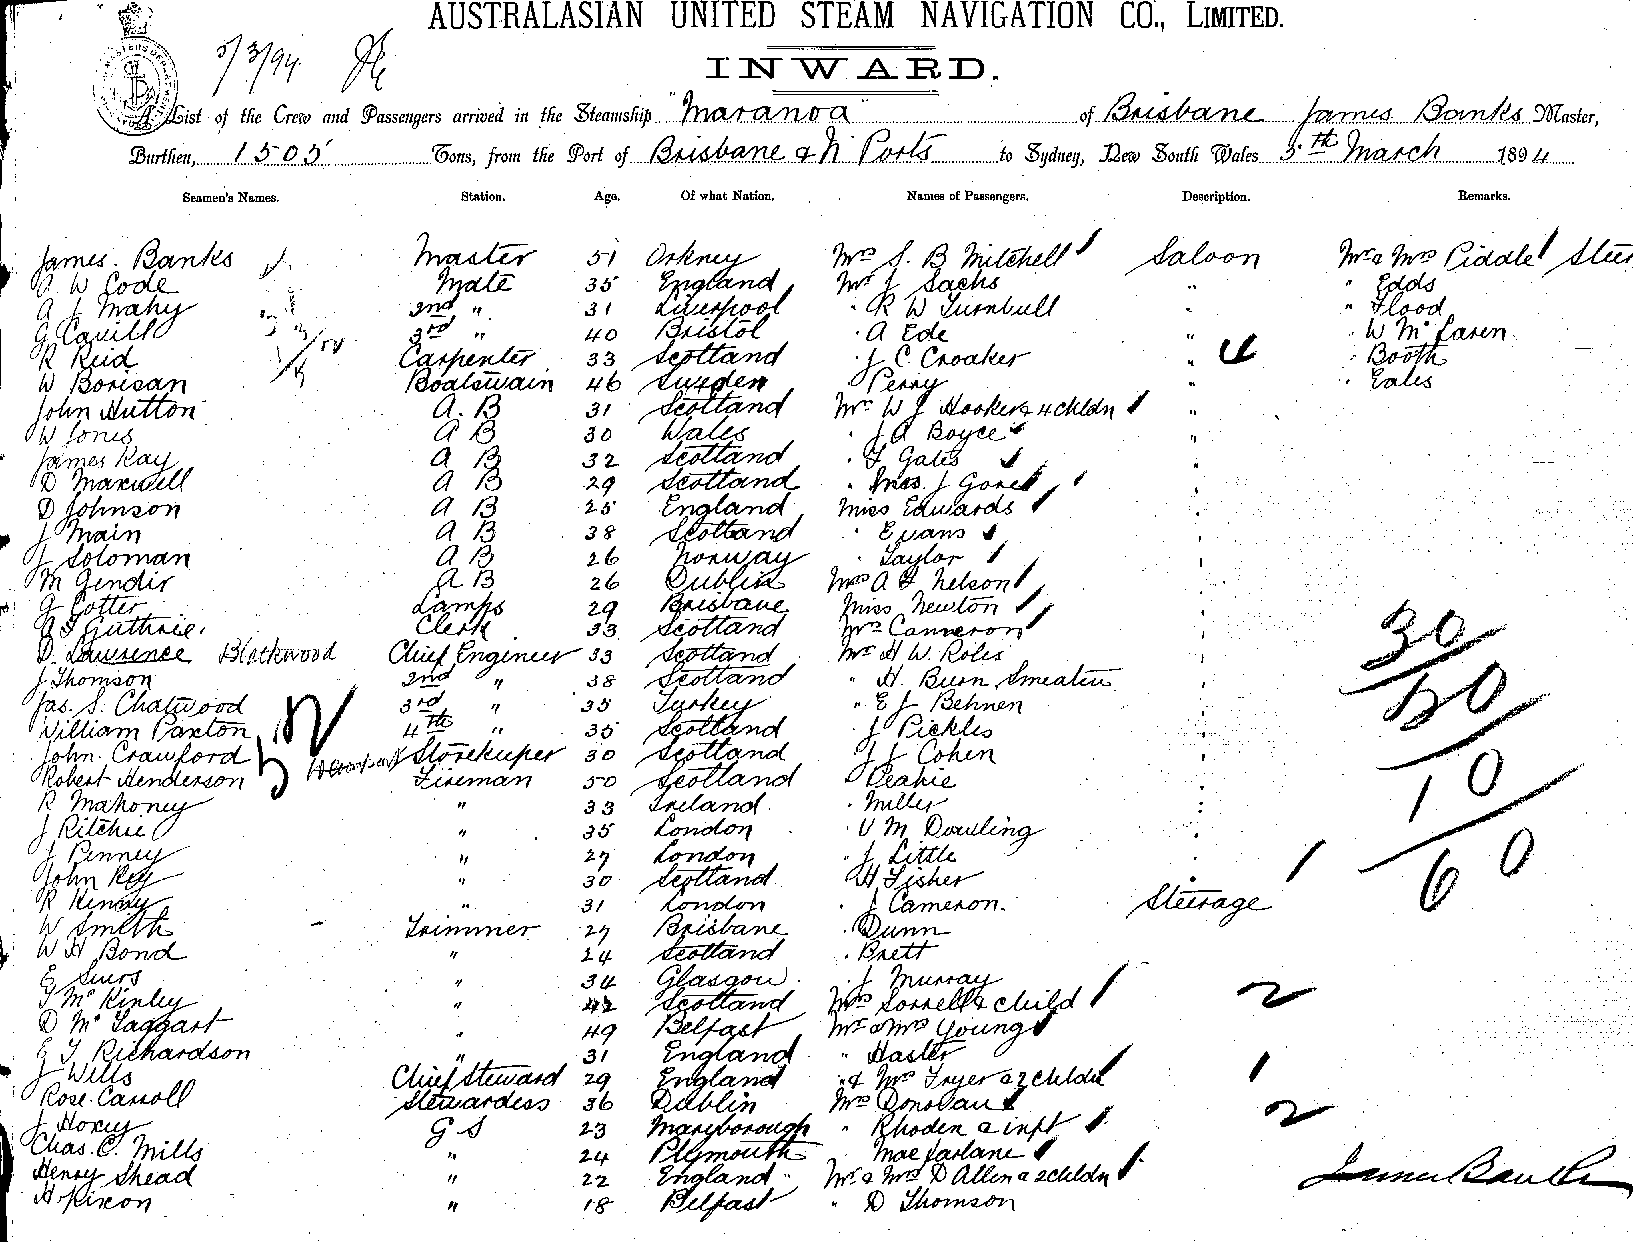 AUSTRALASIAN UNITED STEAM NAVIGATION CO., LIMITED.
5/3/94
INWARD.
A List of the Crew and Passengers arrived in the Steamship "Maranoa" of Brisbane James Banks Master,
Burthen, 1505 Tons, from the Port of Brisbane & N Ports to Sydney, New South Wales 5th March 1894
Seamen's Names. Station. Age. Of what Nation. Names of Passengers. Description. Remarks.
James. Banks Master 51 Orkney Mrs S. B Mitchell Saloon Mr a Mrs Piddle Steer
A W Code Mate 35 England Mr J Sachs " " Edds
A J Mahy 2nd " 31 Liverpool " R W Turnbull " " Flood
G Cavill 3rd " 40 Bristol " A Ede " W Mc Laren
R Reid Carpenter 33 Scotland " J C Croaker " 4 " Booth
W Borisan Boatswain 46 Sweden " Perry " " Eales
John Hutton A. B 31 Scotland Mr W J Hooker & 4 chldn "
W Jones A B 30 Wales " J A Boyce "
James Kay A B 32 Scotland " F Gates "
D Maxwell A B 29 Scotland " J Gore "
D Johnson A B 25 England Miss Edwards "
J Main A B 38 Scotland " Evans "
J Soloman A B 26 Norway " Taylor "
M Gendir A B 26 Dublin Mrs A F Nelson "
G Cotter Lamps 29 Brisbane Miss Newton "
Guthrie. Clerk 33 Scotland Mrs Canneron " 30
D. Lawrence Blackwood Chief Engineer 33 Scotland Mr H W. Roles "
J Thomson 2nd " 38 Scotland " H. Burn Smeaton " 20
Jas. S. Chatwood 3rd " 35 Turkey " E J Behnen "
William Paxton 4th " 35 Scotland " J Pickles "
John. Crawford Storekeeper 30 Scotland " J J Cohen "
Robert Henderson Fireman 50 Scotland " Peakie " 10
R Mahoney " 33 Ireland " Miller "
J Ritchie " 35 London " V M Dowling "
J Penney " 27 London " J Little " 60
John Key " 30 Scotland " H Fisher "
R Henry " 31 London " J Cameron. Steerage
W Smith Trimmer 27 Brisbane " Dunn
W H Bond " 24 Scotland " Brett
E Suers " 34 Glasgow " J Murray 2
T Mc Kinley " 42 Scotland Mrs Sorrell & child
D Mc Taggart " 49 Belfast Mr & Mrs Young
E T Richardson " 31 England " Hasler
J Wills Chief Steward 29 England " & Mrs Fryer a 2 chldn 1
Rose. Carroll Stewardess 36 Dublin Mrs Donovan 2
J Hoxey G S 23 Maryborough " Rhoden a inft
Chas. C. Mills " 24 Plymouth " Macfarlane
Henry Shead " 22 England Mr. a Mrs D Allen a 2 chldn James Banks
H Rixon " 18 Belfast " D Thomson